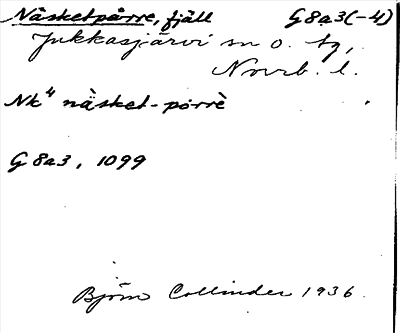 Näsketpårre, fjäll G8a3(-4)
Jukkasjärvi sn o. tg,
Norrb. l.
Nk⁴ näsket-pȯrrè
G8a3, 1099
Björn Collinder 1936.